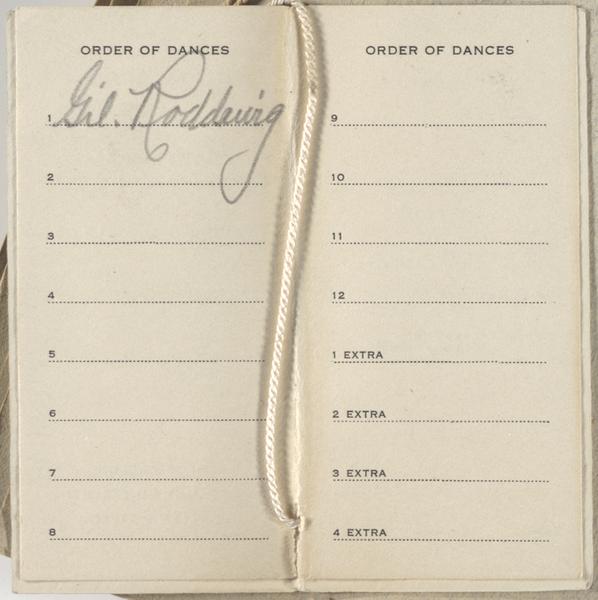 ORDER OF DANCES
1 Gil.
2
3
4
5
6
7
8
ORDER OF DANCES
9
10
11
12
1 EXTRA
2 EXTRA
3 EXTRA
4 EXTRA